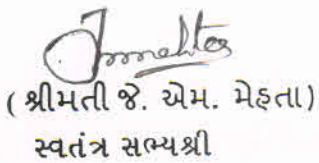 ( શ્રીમતી જે. એમ. મેહતા)
સ્વતંત્ર સભ્યશ્રી